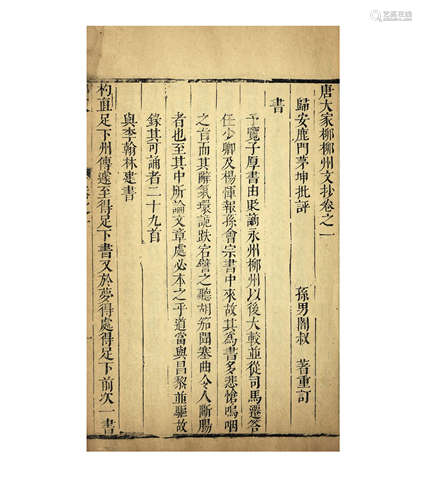 唐大家柳柳州文抄卷之一
歸安鹿門茅坤批評 孫男闇叔 著重訂
書
予覽子厚書由貶謫永州柳州以後大較並從司馬遷答
任少卿及楊惲報孫會宗書中來故其為書多悲愴嗚咽
之旨而其辭氣環詭跌宕譬之聽胡笳聞塞曲令人斷腸
者也至其中所論文章處必本之乎道當與昌黎並驅故
錄其可誦者二十九首
與李翰林建書
杓直足下州傳遽至得足下書又於夢得處得足下前次一書